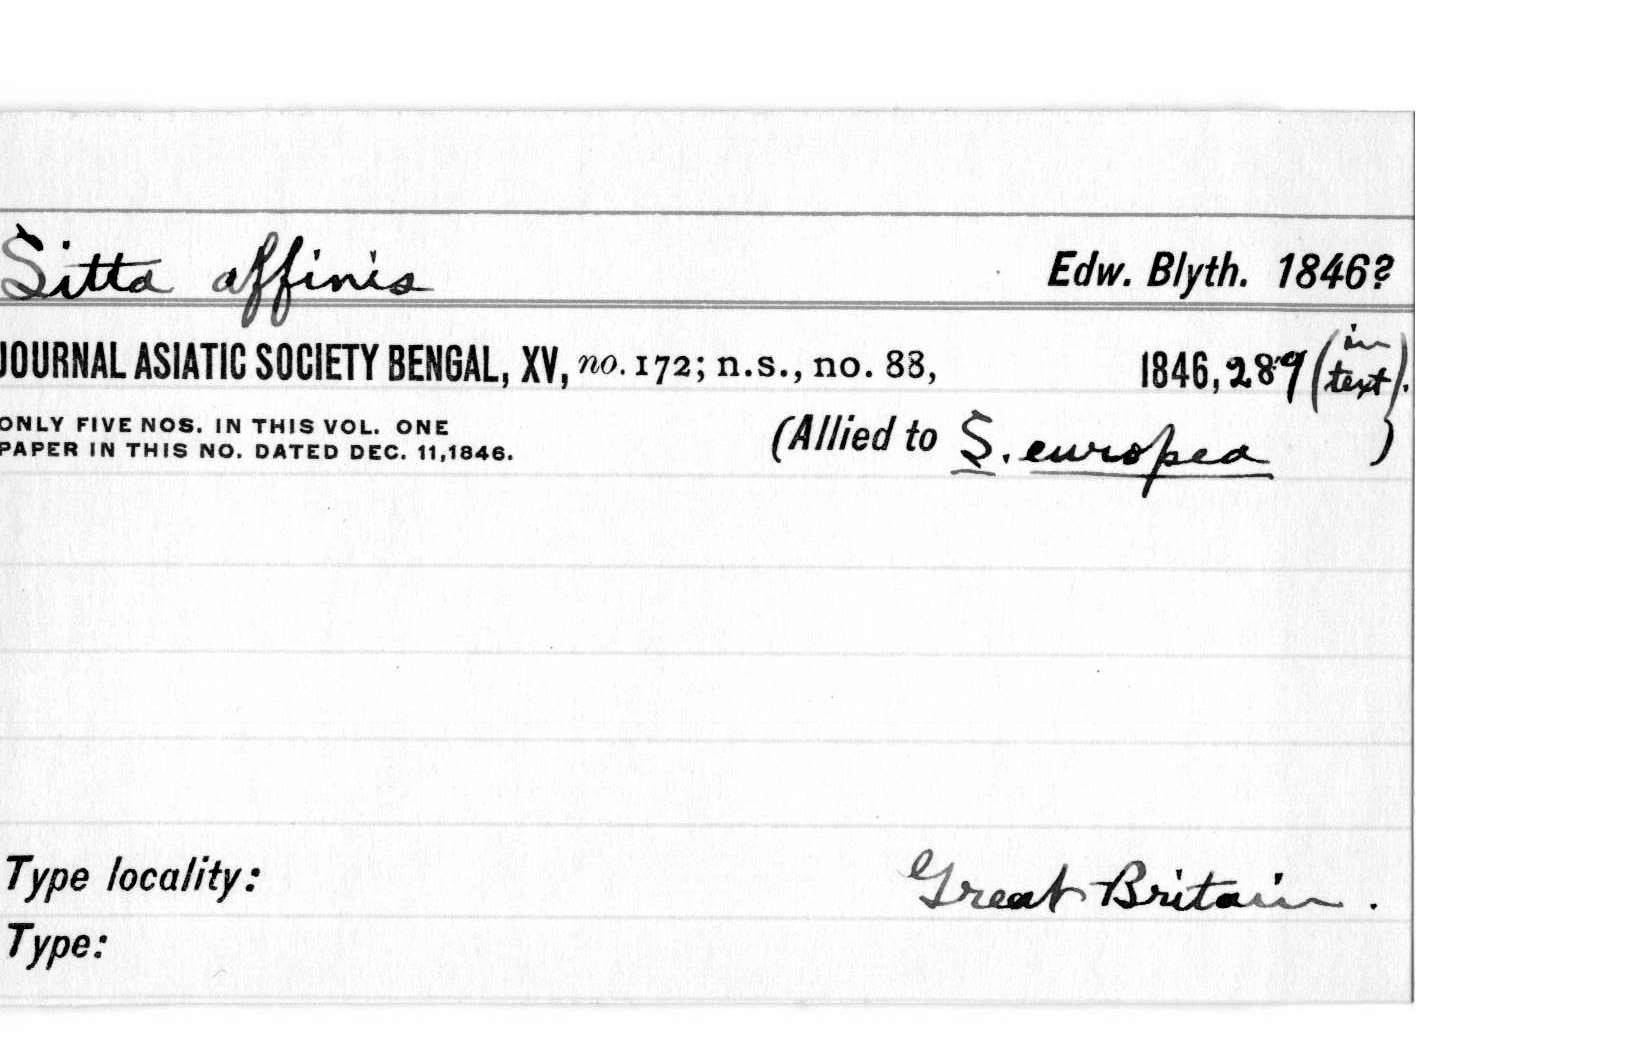 Sitta affinis Edw. Blyth. 1846?
JOURNAL ASIATIC SOCIETY BENGAL, XV, no. 172; n.s., no. 88, 1846, 289 (in text).
ONLY FIVE NOS. IN THIS VOL. ONE
PAPER IN THIS NO. DATED DEC. 11,1846.
(Allied to S. europea)
Type locality: Great Britain.
Type: